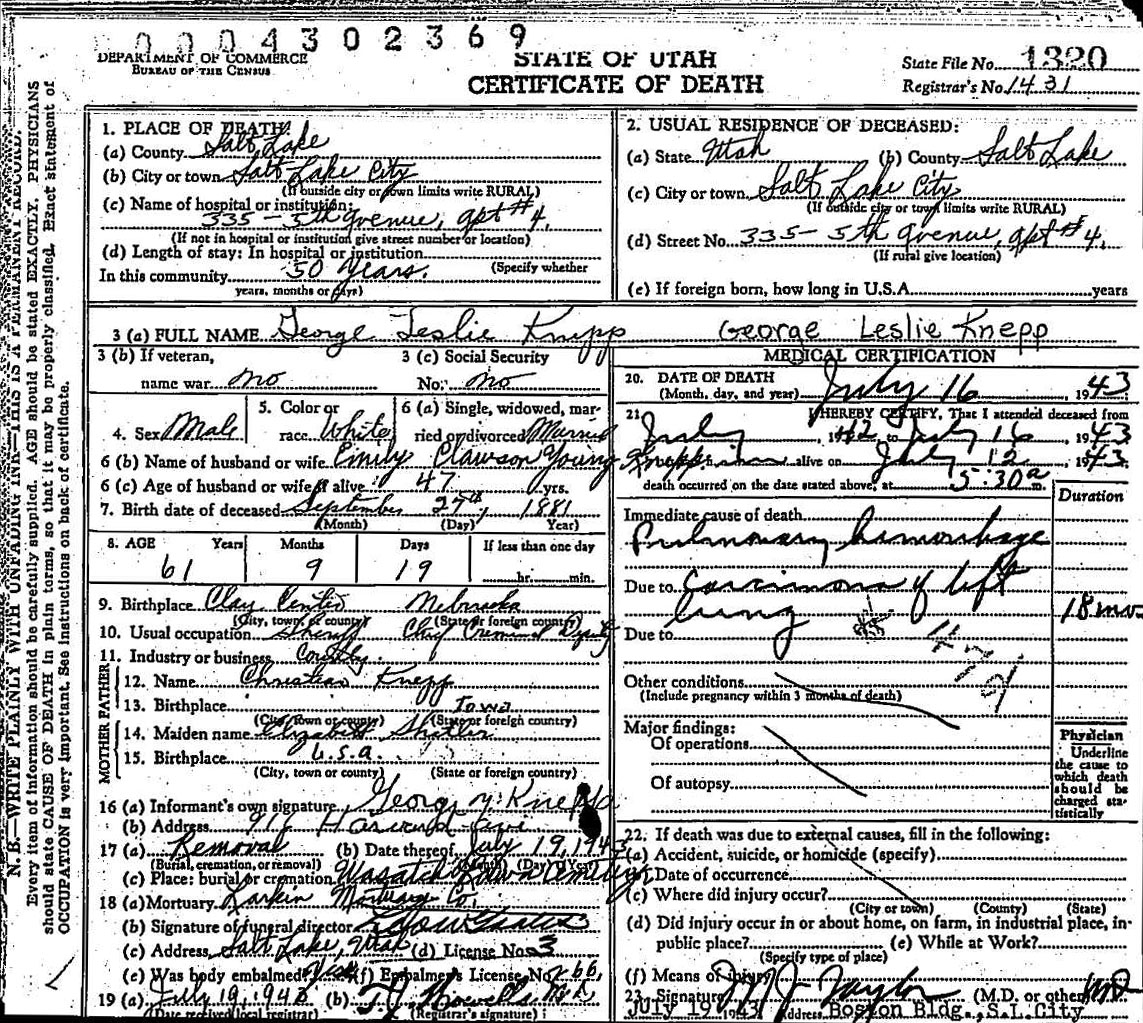 0004302369
DEPARTMENT OF COMMERCE
BUREAU OF THE CENSUS
STATE OF UTAH
CERTIFICATE OF DEATH
State File No. 1320
Registrar's No. 1431
N. B.—WRITE PLAINLY WITH UNFADING INK—THIS IS A PERMANENT RECORD.
Every item of information should be carefully supplied. AGE should be stated EXACTLY. PHYSICIANS
should state CAUSE OF DEATH in plain terms, so that it may be properly classified. Exact statement of
OCCUPATION is very important. See instructions on back of certificate.
1. PLACE OF DEATH:
(a) County Salt Lake
(b) City or town Salt Lake City
(If outside city or town limits write RURAL)
(c) Name of hospital or institution:
335 - 5th Avenue, Apt # 4.
(If not in hospital or institution give street number or location)
(d) Length of stay: In hospital or institution
(Specify whether
In this community 50 Years.
years, months or days)
2. USUAL RESIDENCE OF DECEASED:
(a) State Utah (b) County Salt Lake
(c) City or town Salt Lake City
(If outside city or town limits write RURAL)
(d) Street No. 335 - 5th Avenue, Apt # 4.
(If rural give location)
(e) If foreign born, how long in U.S.A. years
3 (a) FULL NAME George Leslie Knepp George Leslie Knepp
3 (b) If veteran, 3 (c) Social Security
name war no No. no
4. Sex Male 5. Color or race White 6 (a) Single, widowed, married or divorced Married
6 (b) Name of husband or wife Emily Clawson Young Knepp
6 (c) Age of husband or wife if alive 47 yrs.
7. Birth date of deceased September 27th, 1881
(Month) (Day) Year)
8. AGE Years Months Days If less than one day
61 9 19 hr. min.
9. Birthplace Clay Center Nebraska
(City, town or county) (State or foreign country)
10. Usual occupation Sheriff Chief Criminal Deputy
11. Industry or business County.
FATHER
12. Name Christian Knepp
13. Birthplace Iowa
(City, town or county) (State or foreign country)
MOTHER
14. Maiden name Elizabeth
15. Birthplace U.S.A.
(City, town or county) (State or foreign country)
16 (a) Informant's own signature George Knepp
(b) Address Harvard
17 (a) Removal (b) Date thereof July 19, 1943
(Burial, cremation, or removal) (Month) (Day) (Year)
(c) Place: burial or cremation Wasatch Lawn Cemetery
18 (a) Mortuary Larkin Mortuary Co.
(b) Signature of funeral director
(c) Address Salt Lake, Utah (d) License No. 3
(e) Was body embalmed? Yes (f) Embalmer's License No. 266
19 (a) July 19, 1943 (b) M.D.
(Date received local registrar) (Registrar's signature)
MEDICAL CERTIFICATION
20. DATE OF DEATH July 16, 1943
(Month, day, and year)
21. I HEREBY CERTIFY, That I attended deceased from
July, 1942, to July 16, 1943
alive on July 12, 1943
death occurred on the date stated above, at 5:30 a m.
Duration
Immediate cause of death
Pulmonary hemorrhage
Due to Carcinoma of left
lung 18 mo
Due to
Other conditions
(Include pregnancy within 3 months of death)
Major findings:
Of operations
Of autopsy
Physician
Underline
the cause to
which death
should be
charged sta-
tistically
22. If death was due to external causes, fill in the following:
(a) Accident, suicide, or homicide (specify)
(b) Date of occurrence
(c) Where did injury occur?
(City or town) (County) (State)
(d) Did injury occur in or about home, on farm, in industrial place, in
public place? (e) While at Work?
(Specify type of place)
(f) Means of injury
23. Signature Taylor (M.D. or other) MD
July 19 1943 Address Boston Bldg., S.L.City